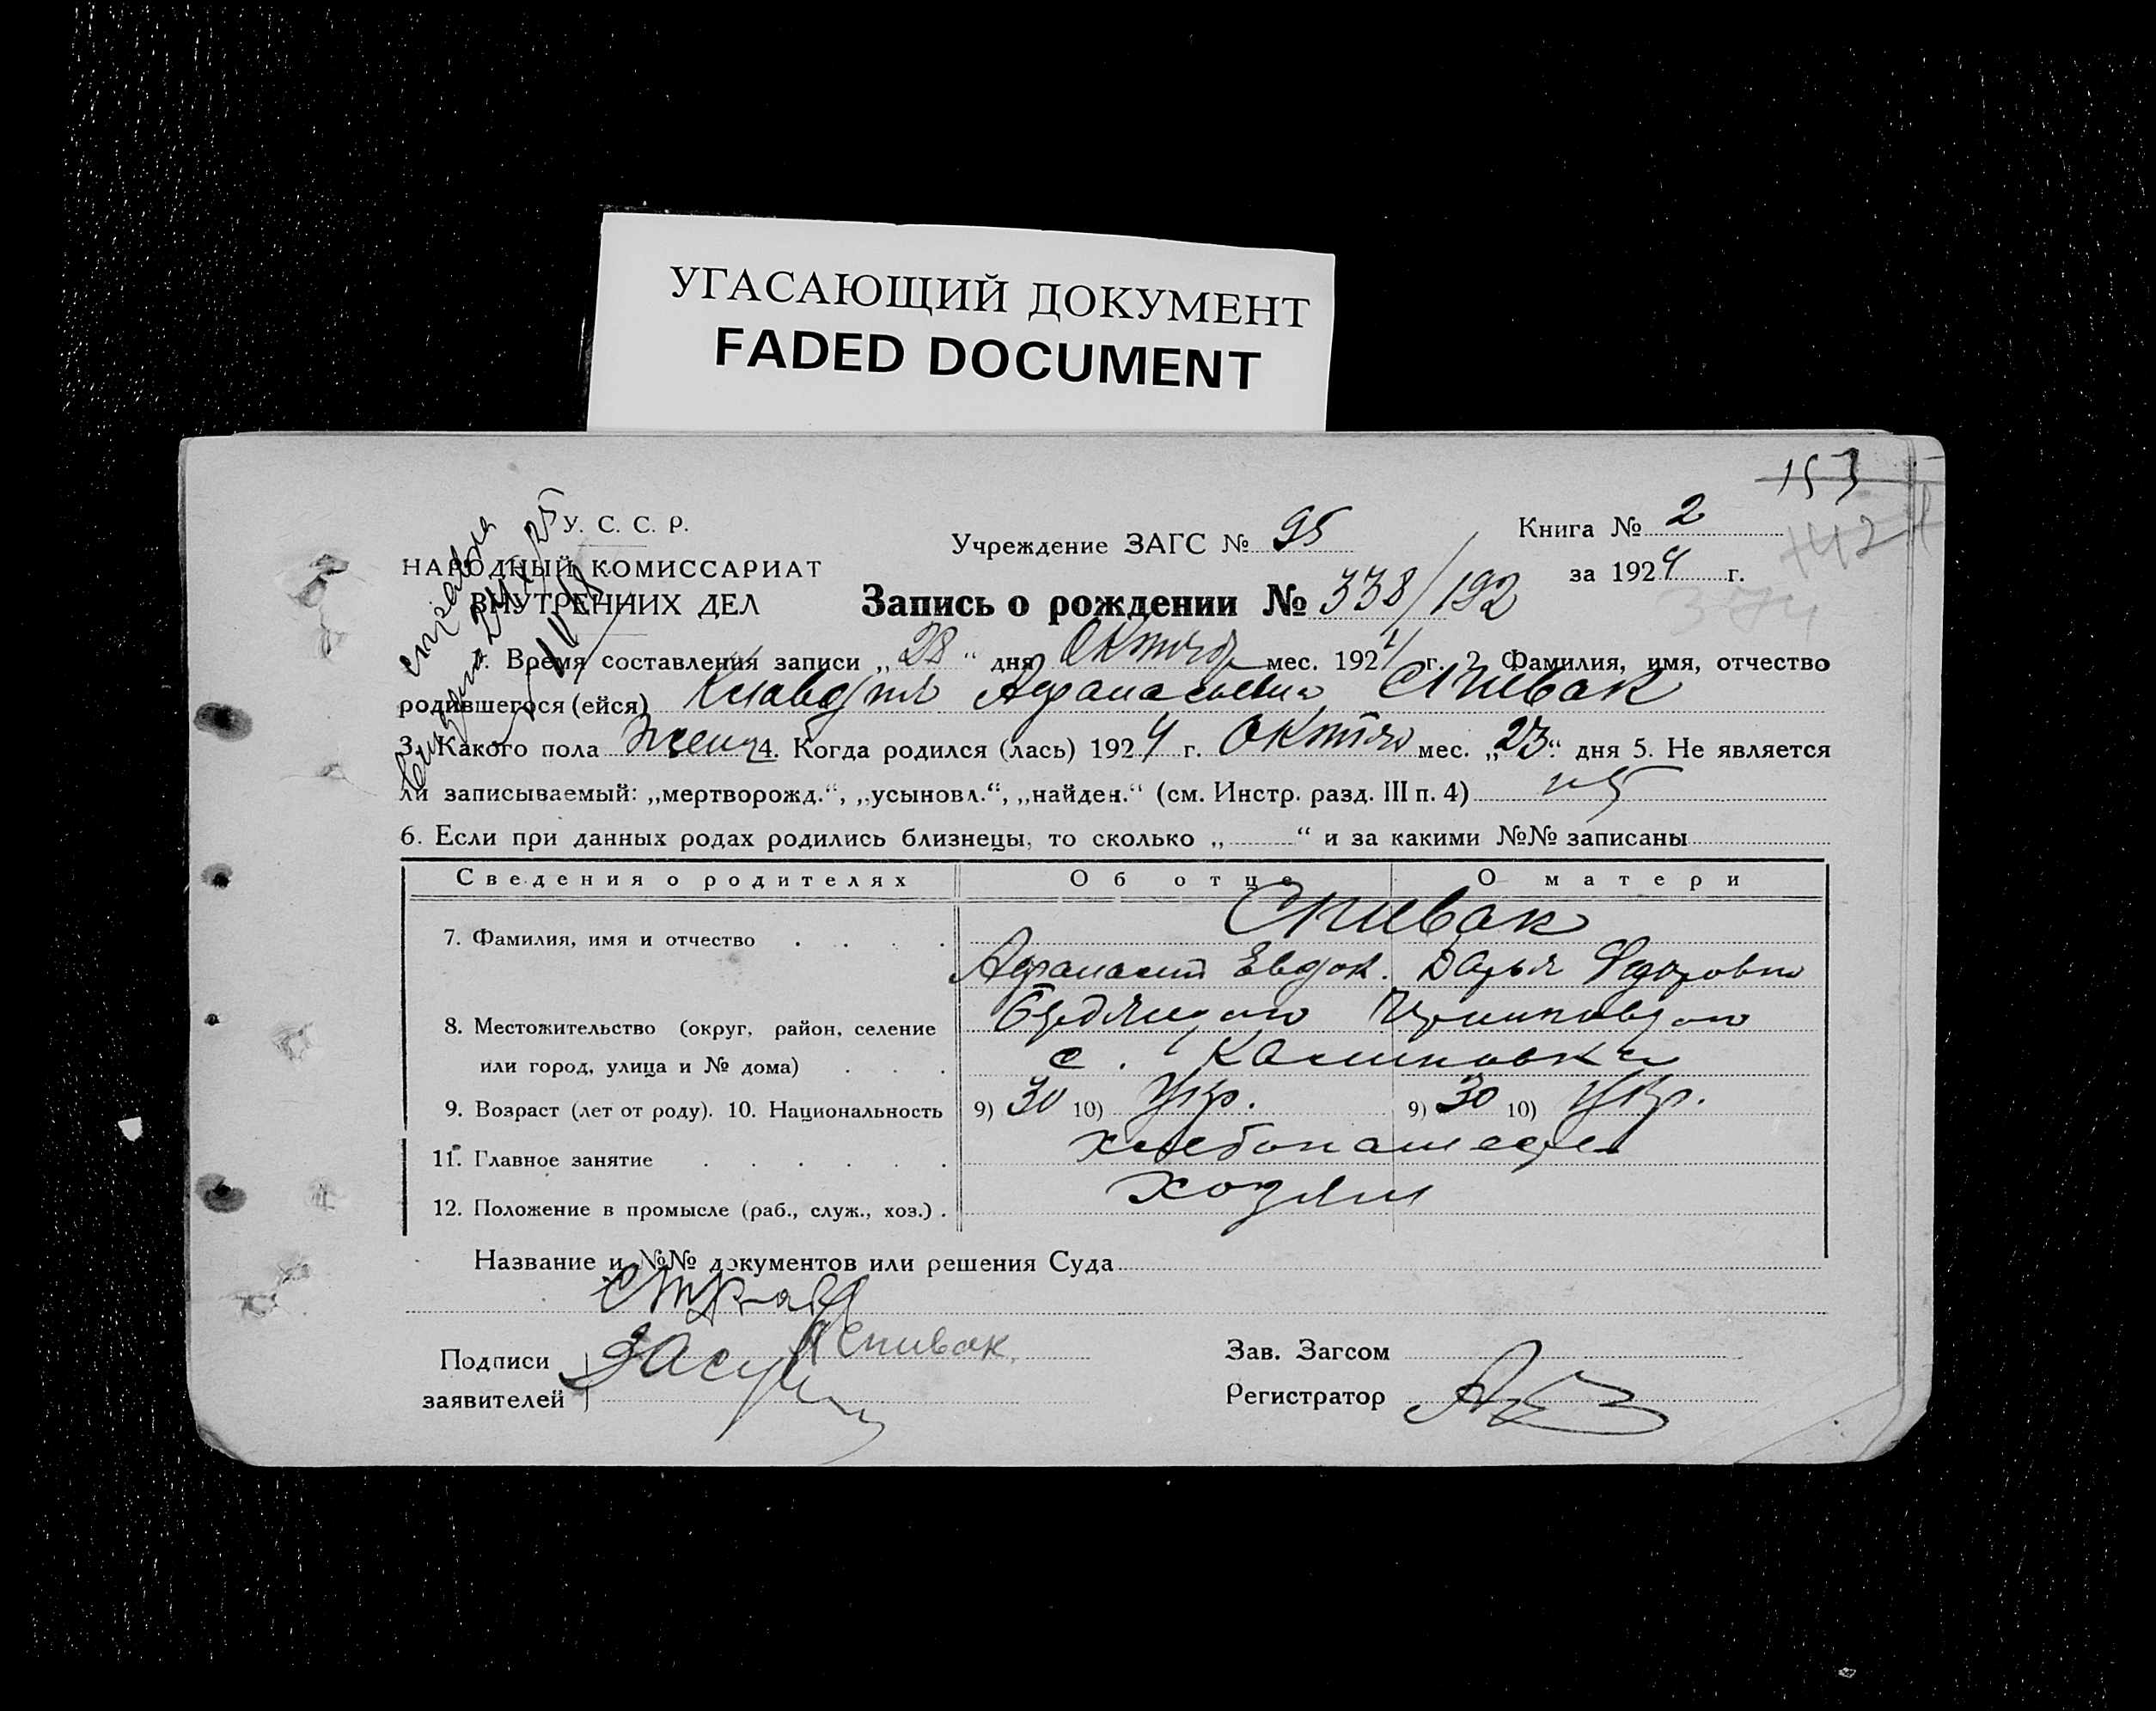 УГАСАЮЩИЙ ДОКУМЕНТ
FADED DOCUMENT
153
У. С. С. Р.
НАРОДНЫЙ КОМИССАРИАТ
ВНУТРЕННИХ ДЕЛ
Учреждение ЗАГС № 95
Книга № 2
за 1924 г.
374
Запись о рождении № 338/192
1. Время составления записи „28“ дня Октября мес. 1924 г. 2. Фамилия, имя, отчество
родившегося (ейся) Клавдия Афанасьевна Спивак
3. Какого пола женск 4. Когда родился (лась) 1924 г. Октяб мес. „23“ дня 5. Не является
ли записываемый: „мертворожд.“, „усыновл.“, „найден.“ (см. Инстр. разд. III п. 4) нет
6. Если при данных родах родились близнецы, то сколько „ “ и за какими №№ записаны
Сведения о родителях Об отце О матери
7. Фамилия, имя и отчество Спивак
Афанасий Евдок. Дарья Федоровна
8. Местожительство (округ, район, селение
или город, улица и № дома) с.
9. Возраст (лет от роду). 10. Национальность 9) 30 10) Укр. 9) 30 10) Укр.
11. Главное занятие хлебопашец
12. Положение в промысле (раб., служ., хоз.) хозяин
Название и №№ документов или решения Суда
Подписи
заявителей
Спивак
Зав. Загсом
Регистратор